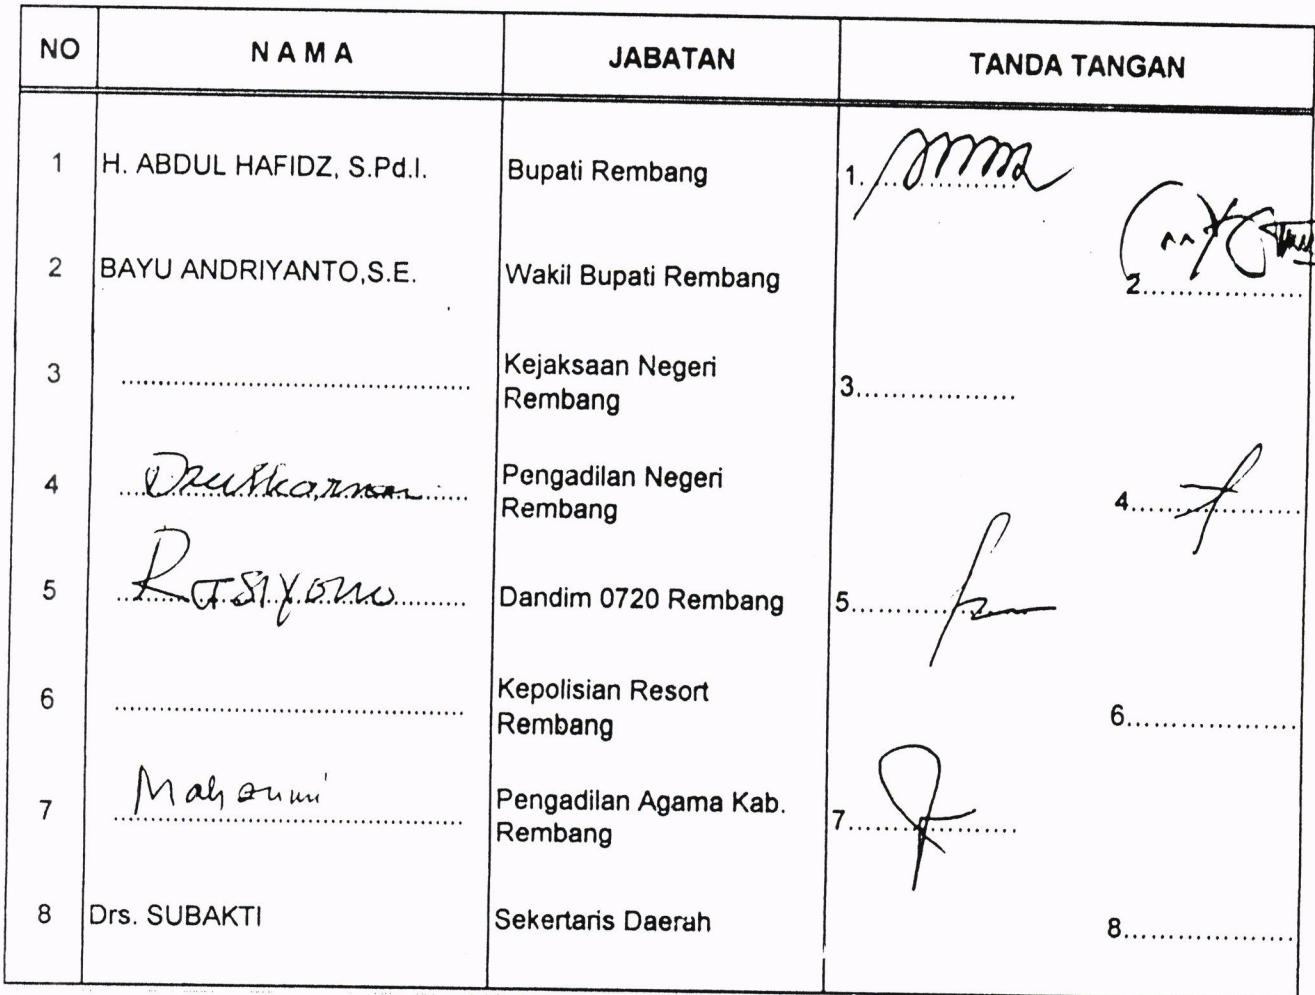 NO N A M A JABATAN TANDA TANGAN
1 H. ABDUL HAFIDZ, S.Pd.I. Bupati Rembang 1..................
2 BAYU ANDRIYANTO,S.E. Wakil Bupati Rembang 2..................
3 .......................................... Kejaksaan Negeri
Rembang 3..................
4 Pengadilan Negeri
Rembang 4..................
5 Rasiyono Dandim 0720 Rembang 5..................
6 .......................................... Kepolisian Resort
Rembang 6..................
7 Pengadilan Agama Kab.
Rembang 7..................
8 Drs. SUBAKTI Sekertaris Daerah 8..................